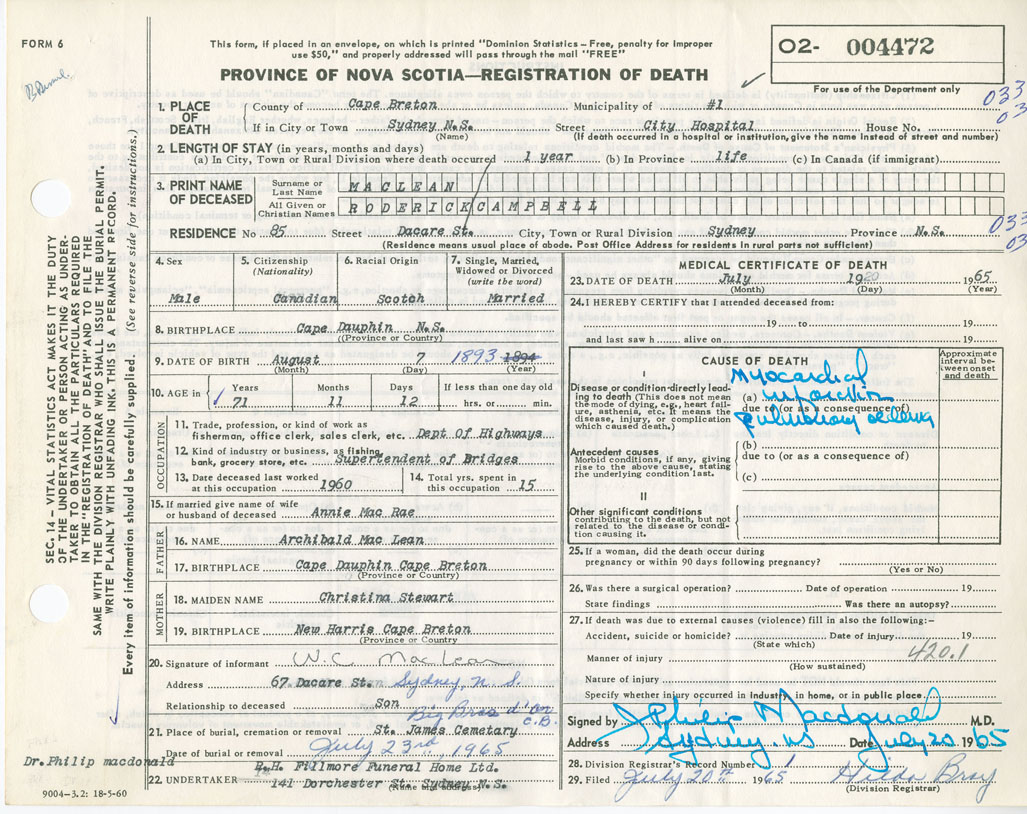 FORM 6
This form, if placed in an envelope, on which is printed "Dominion Statistics – Free, penalty for improper
use $50," and properly addressed will pass through the mail "FREE"
PROVINCE OF NOVA SCOTIA—REGISTRATION OF DEATH
02- 004472
For use of the Department only
033
1. PLACE OF DEATH
County of Cape Breton Municipality of #1
If in City or Town Sydney N.S. Street City Hospital House No.
(Name) (If death occurred in a hospital or institution, give the name instead of street and number)
2. LENGTH OF STAY (in years, months and days)
(a) In City, Town or Rural Division where death occurred 1 year (b) In Province life (c) In Canada (if immigrant)
3. PRINT NAME OF DECEASED
Surname or Last Name MACLEAN
All Given or Christian Names RODERICK CAMPBELL
RESIDENCE No 85 Street Dacare St. City, Town or Rural Division Sydney Province N.S.
(Residence means usual place of abode. Post Office Address for residents in rural parts not sufficient)
033
SEC. 14 – VITAL STATISTICS ACT MAKES IT THE DUTY
OF THE UNDERTAKER OR PERSON ACTING AS UNDER-
TAKER TO OBTAIN ALL THE PARTICULARS REQUIRED
IN THE "REGISTRATION OF DEATH" AND TO FILE THE
SAME WITH THE DIVISION REGISTRAR WHO SHALL ISSUE THE BURIAL PERMIT.
WRITE PLAINLY WITH UNFADING INK. THIS IS A PERMANENT RECORD.
Every item of information should be carefully supplied. (See reverse side for instructions.)
4. Sex Male
5. Citizenship (Nationality) Canadian
6. Racial Origin Scotch
7. Single, Married, Widowed or Divorced (write the word) Married
8. BIRTHPLACE Cape Dauphin N.S.
(Province or Country)
9. DATE OF BIRTH August 7 1893 1894
(Month) (Day) (Year)
10. AGE in Years 71 Months 11 Days 12 If less than one day old hrs. or min.
OCCUPATION
11. Trade, profession, or kind of work as
fisherman, office clerk, sales clerk, etc. Dept Of Highways
12. Kind of industry or business, as fishing,
bank, grocery store, etc. Supertendent of Bridges
13. Date deceased last worked
at this occupation 1960
14. Total yrs. spent in
this occupation 15
15. If married give name of wife
or husband of deceased Annie Mac Rae
FATHER
16. NAME Archibald Mac Lean
17. BIRTHPLACE Cape Dauphin Cape Breton
(Province or Country)
MOTHER
18. MAIDEN NAME Christina Stewart
19. BIRTHPLACE New Harris Cape Breton
(Province or Country)
20. Signature of informant W.C. MacLean
Address 67 Dacare St. Sydney, N.S.
Relationship to deceased Son
Big Bras d'Or C.B.
21. Place of burial, cremation or removal St. James Cemetary
Date of burial or removal July 23rd 1965
Dr. Philip macdonald
22. UNDERTAKER H. Fillmore Funeral Home Ltd.
141 Dorchester St. Sydney N.S.
(Name and address)
9004-3.2: 18-5-60
MEDICAL CERTIFICATE OF DEATH
23. DATE OF DEATH July 20 1965
(Month) (Day) (Year)
24. I HEREBY CERTIFY that I attended deceased from:
19 to 19
and last saw h alive on 19
CAUSE OF DEATH
Approximate interval between onset and death
I
Disease or condition directly lead-
ing to death (This does not mean
the mode of dying, e.g., heart fail-
ure, asthenia, etc. It means the
disease, injury, or complication
which caused death.)
(a) Myocardial infarction
due to (or as a consequence of)
pulmonary oedema
Antecedent causes
Morbid conditions, if any, giving
rise to the above cause, stating
the underlying condition last.
(b)
due to (or as a consequence of)
(c)
II
Other significant conditions
contributing to the death, but not
related to the disease or condi-
tion causing it.
25. If a woman, did the death occur during
pregnancy or within 90 days following pregnancy?
(Yes or No)
26. Was there a surgical operation? Date of operation 19
State findings Was there an autopsy?
27. If death was due to external causes (violence) fill in also the following:–
Accident, suicide or homicide? Date of injury 19
(State which)
420.1
Manner of injury
(How sustained)
Nature of injury
Specify whether injury occurred in industry, in home, or in public place
Signed by Philip Macdonald M.D.
Address Sydney NS Date July 20 1965
28. Division Registrar's Record Number 1
29. Filed July 20th 1965 Hilda Bray
(Division Registrar)